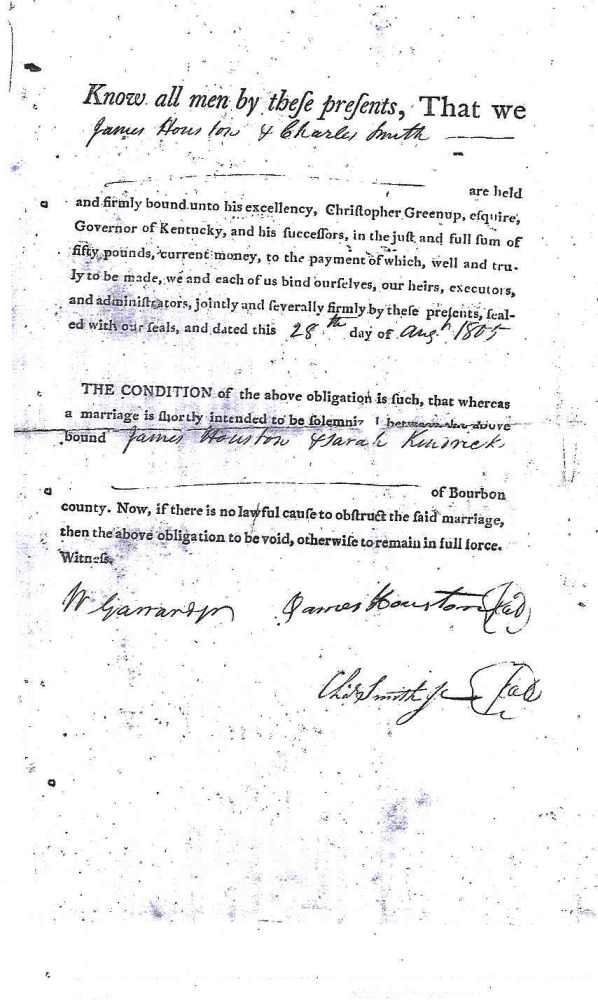 Know all men by theſe preſents, That we
James Houston & Charles Smith
are held
and firmly bound unto his excellency, Chriſtopher Greenup, eſquire,
Governor of Kentucky, and his ſucceſſors, in the juſt and full ſum of
fifty pounds, current money, to the payment of which, well and tru-
ly to be made, we and each of us bind ourſelves, our heirs, executors,
and adminiſtrators, jointly and ſeverally firmly by theſe preſents, ſeal-
ed with our ſeals, and dated this 28th day of Augt 1805
THE CONDITION of the above obligation is ſuch, that whereas
a marriage is ſhortly intended to be ſolemniz between the above
bound James Houston & Sarah Kendrick
of Bourbon
county. Now, if there is no lawful cauſe to obſtruct the ſaid marriage,
then the above obligation to be void, otherwiſe to remain in full force.
Witneſs,
W Garrard jr James Houston Seal
Chas Smith Jr Seal